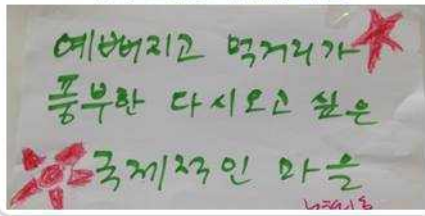 예뻐지고 먹거리가
풍부한 다시오고 싶은
국제적인 마을